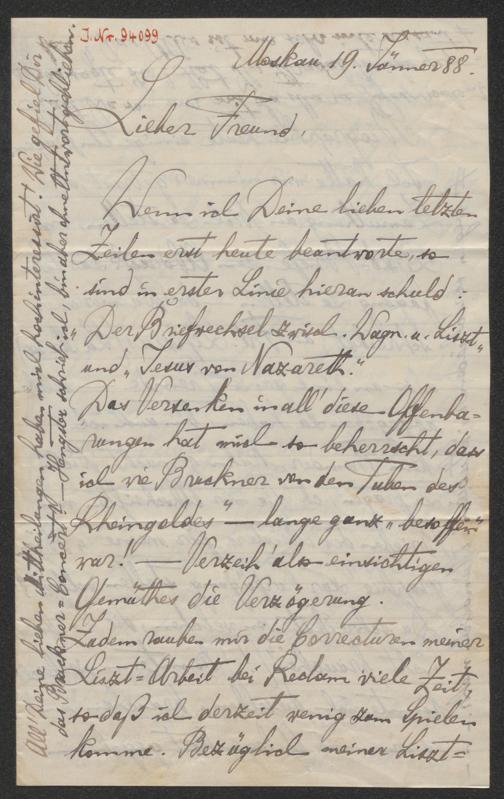 J. Nr. 94099
Moskau 19. Jänner 88.
Lieber Freund,
Wenn ich Deine lieben letzten
Zeilen erst heute beantworte, so
sind in erster Linie hieran schuld:
„Der Briefwechsel zwisch. Wagn. u. Liszt“
und „Jesus von Nazareth.“
Das Versenken in all' diese Offenba=
rungen hat mich so beherrscht, dass
ich wie Bruckner von den Tuben des
Rheingoldes“ — lange ganz „besoffen“
war! — Verzeih' also einsichtigen
Gemüthes die Verzögerung.
Zudem rauben mir die Correcturen meiner
Liszt=Arbeit bei Reclam viele Zeit,
so daß ich derzeit wenig zum Spielen
komme. Bezüglich meiner Liszt=
All' Deine lieben Mittheilungen haben mich hochinteressirt! Wie gefiel Dir
das Bruckner=Concert? — schrieb ich, bin aber ohne Antwort geblieben.